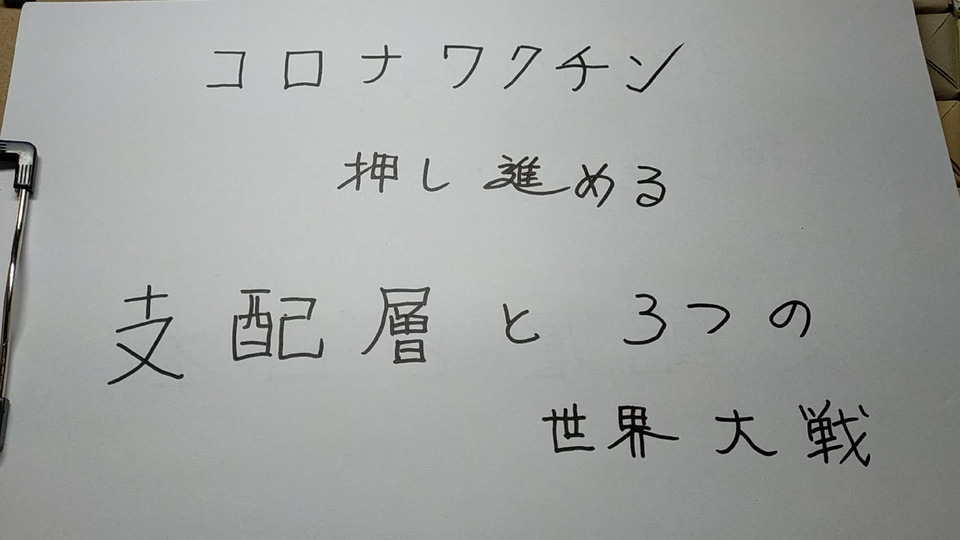 コロナワクチン
押し進める
支配層と3つの
世界大戦